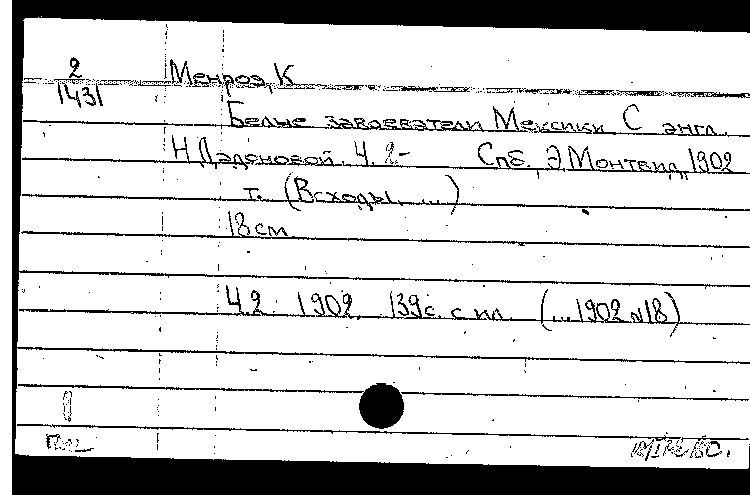 2
1431
Менроэ, К
Белые завоеватели Мексики С англ.
Н.Дадоновой. Ч. 2- Спб., Э.Монтвид, 1902
т. (Всходы, ...)
18 см.
Ч.2. 1902. 139с. с ил. (...1902 №18)